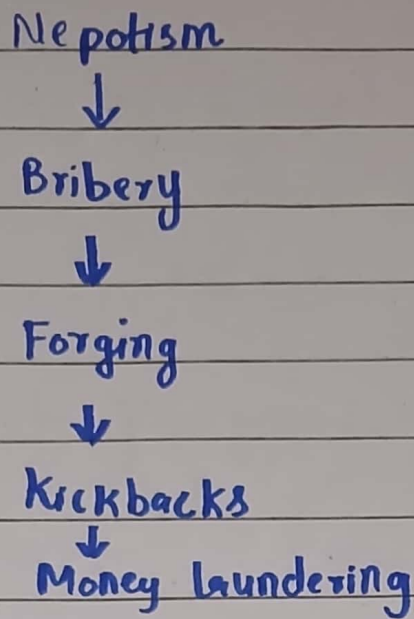 Nepotism
↓
Bribery
↓
Forging
↓
Kickbacks
↓
Money laundering